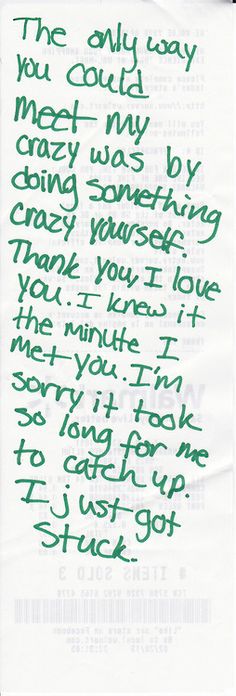 The only way
you could
meet my
crazy was by
doing something
crazy yourself.
Thank you, I love
you. I knew it
the minute I
met you. I'm
sorry it took
so long for me
to catch up.
I just got
stuck.
# ITEMS SOLD 3